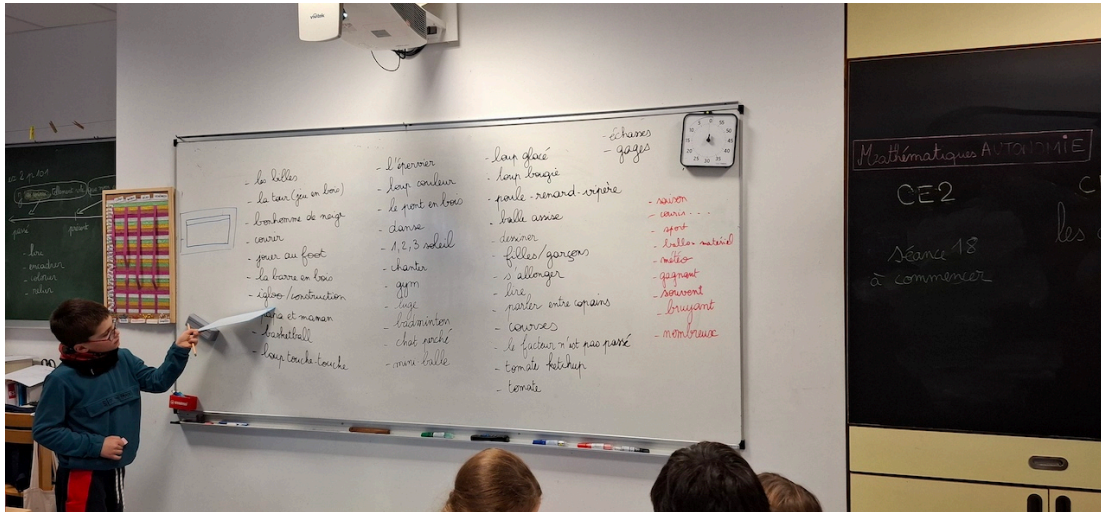 CE2 p 101
passé
présent
- lire
- encadrer
- colorier
- relire
- les balles
- la tour (jeu en bois)
- bonhomme de neige
- courir
- jouer au foot
- la barre en bois
- igloo/construction
papa et maman
- basketball
- loup touche-touche
- l'épervier
- loup couleur
- le pont en bois
- danse
- 1, 2, 3 soleil
- chanter
- gym
- luge
- badminton
- chat perché
- mini balle
- loup glacé
- loup bougie
- poule-renard-vipère
- balle assise
- dessiner
- filles/garçons
- s'allonger
- lire
- parler entre copains
- courses
- le facteur n'est pas passé
- tomate ketchup
- tomate
- échasses
- gages
- saison
- souris - - -
- sport
- balle-matériel
- météo
- gagnant
- souvent
- bruyant
- nombreux
Mathématiques AUTONOMIE
CE2
Séance 18
à commencer
C
les